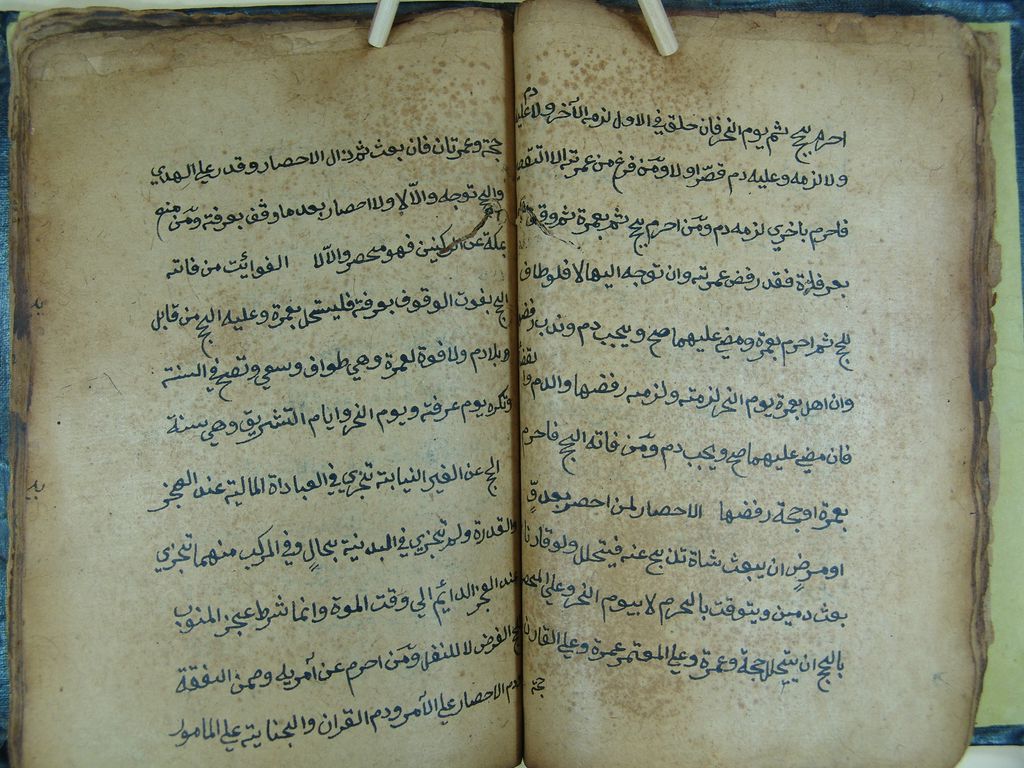 احرم بحج ثم يوم النحر فان حلق في الاول لزمه الآخر ولا دم عليه
ولا لزمه وعليه دم قصّر اولا ومَن فرغ من عمرته الا التقصير
فاحرم باخري لزمه دم ومَن احرم بحج ثم بعمرة ثم وقف
بعرفة فقد رفض عمرته وان توجه اليها لا فلو طاف
للحج ثم احرم بعمرة ومضي عليهما صح ويجب دم وندب رفضها
وان اهل بعمرة يوم النحر لزمته ولزمه رفضها والدم والقضا
فان مضي عليهما صح ويجب دم ومَن فاته الحج فاحرم
بعمرة اوحجة رفضها الاحصار لمن احصر بعدوٍّ
اومرضٍ ان يبعث شاة تذبح عنه فيتحلل ولو قارنا
بعث دمين ويتوقت بالحرم لا بيوم النحر وعلي المحصر
بالحج ان يتحلل حجة وعمرة وعلي المعتمر عمرة وعلي القارن
حجة
حجة وعمرتان فان بعث ثم زال الاحصار وقدر علي الهدي
والحج توجه والاّ لا ولا احصار بعد ما وقف بعرفة ومَن منع
بمكة عن الركنين فهو محصر والاّ لا الفوائت من فاته
الحج بفوت الوقوف بعرفة فليتحل بعمرة وعليه الحج من قابل
بلا دم ولا فوة لعمرة وهي طواف وسعي وتصح في السنة
وتكره يوم عرفة ويوم النحر وايام التشريق وهي سنة
الحج عن الغير النيابة تجزي في العباداة المالية عند العجز
والقدرة ولم تجزي في البدنية بحالٍ وفي المركب منهما تجزي
عند العجز الدائم الي وقت الموة وانما شرط عجز المنوب
للحج الفرض لا للنفل ومَن احرم عن آمريه وضمن النفقة
ودم الاحصار علي الآمر ودم القران والجناية علي المامور